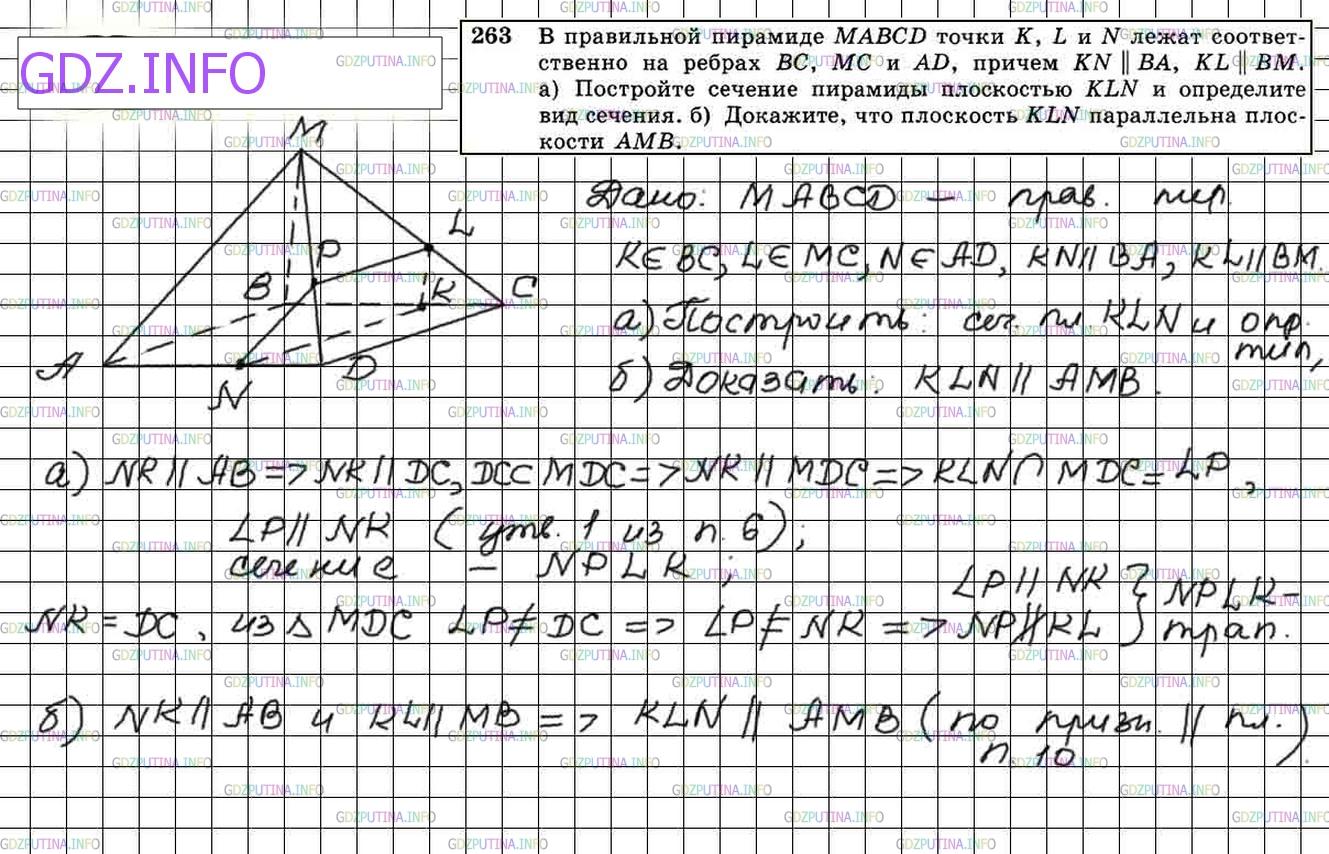 GDZ.INFO
263 В правильной пирамиде MABCD точки K, L и N лежат соответ-
ственно на ребрах BC, MC и AD, причем KN || BA, KL || BM.
а) Постройте сечение пирамиды плоскостью KLN и определите
вид сечения. б) Докажите, что плоскость KLN параллельна плос-
кости AMB.
M
L
P
B
K
C
A
D
N
Дано: MABCD – прав. пир.
K∈BC, L∈MC, N∈AD, KN||BA, KL||BM.
а) Построить: сеч. пл KLN и опр.
тип,
б) Доказать: KLN || AMB.
а) NK || AB => NK || DC, DC⊂MDC => NK || MDC => KLN∩MDC = LP,
LP || NK (утв. 1 из п. 6);
сечение – NPLK;
LP || NK
NK = DC, из Δ MDC LP≠DC => LP≠NK => NP∦KL } NPLK – трап.
б) NK || AB и KL || MB => KLN || AMB (по призн. || пл.)
п. 10
GDZPUTINA.INFO